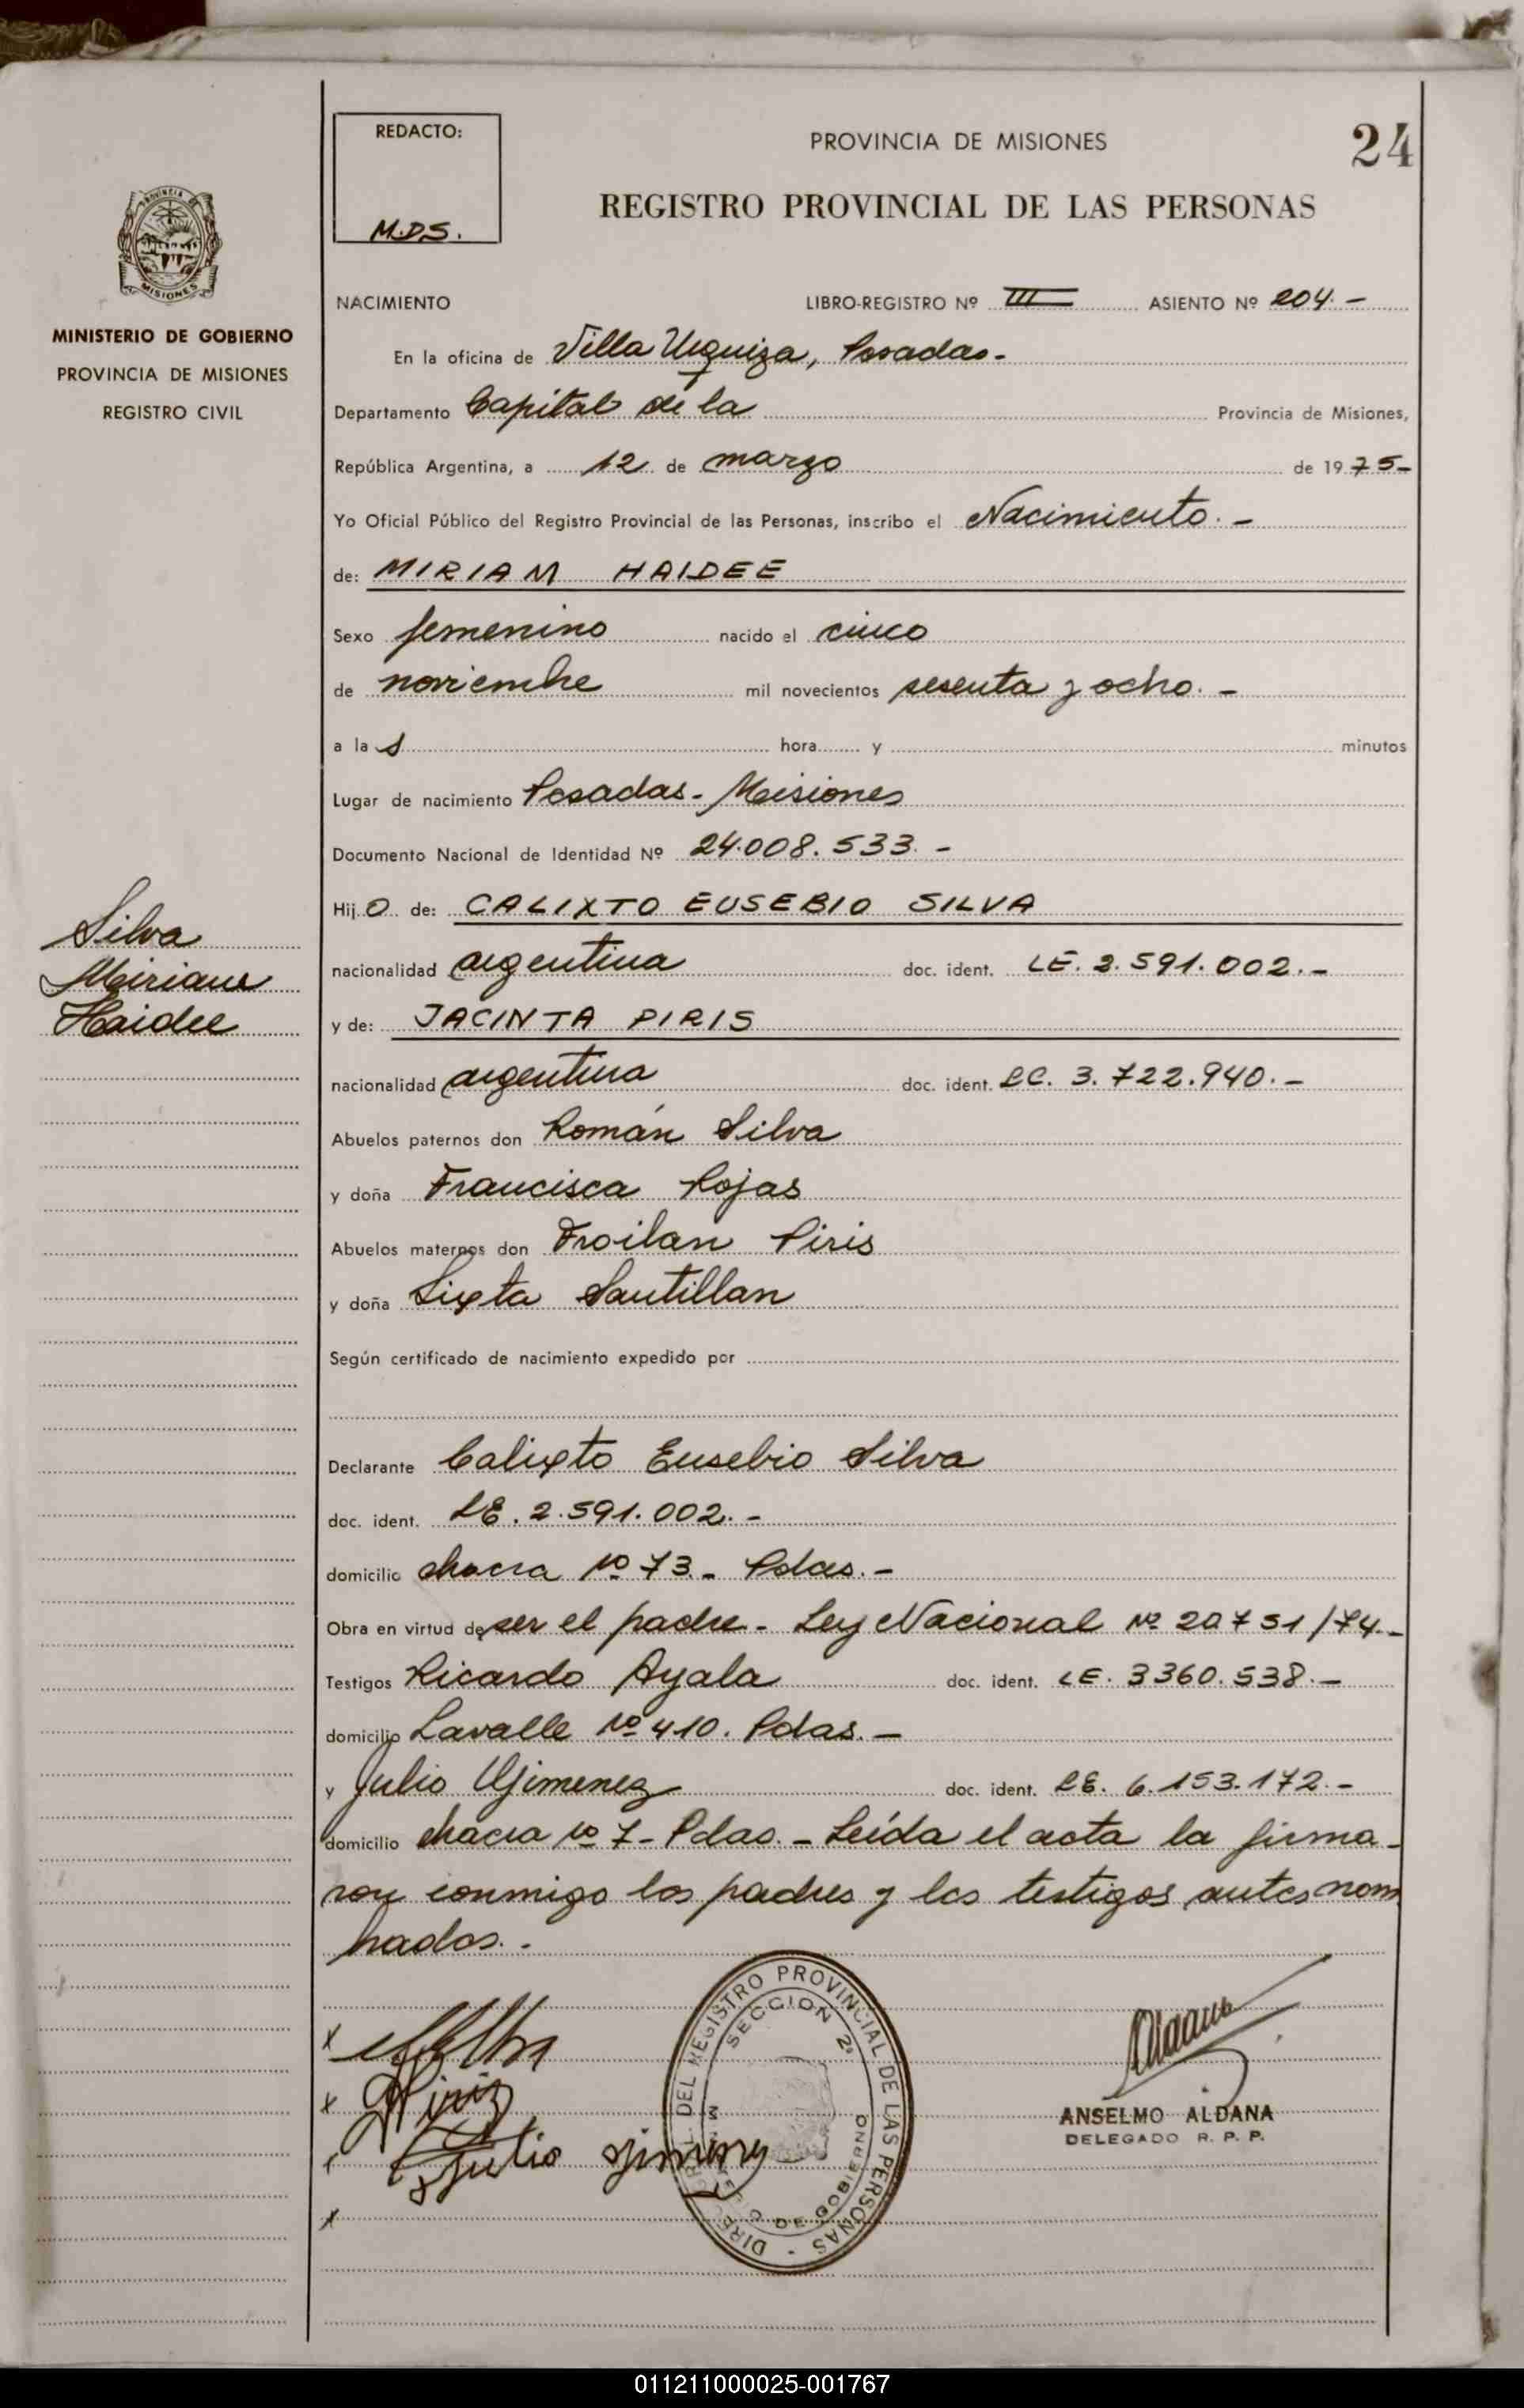 REDACTO:
M.D.S.
PROVINCIA DE MISIONES
24
REGISTRO PROVINCIAL DE LAS PERSONAS
MISIONES
MINISTERIO DE GOBIERNO
PROVINCIA DE MISIONES
REGISTRO CIVIL
NACIMIENTO LIBRO-REGISTRO Nº III ASIENTO Nº 204.-
En la oficina de Villa Urquiza, Posadas.-
Departamento Capital de la Provincia de Misiones,
República Argentina, a 12 de marzo de 1975-
Yo Oficial Público del Registro Provincial de las Personas, inscribo el Nacimiento.-
de: MIRIAM HAIDEE
Sexo femenino nacido el cinco
de noviembre mil novecientos sesenta y ocho.-
a las hora y minutos
Lugar de nacimiento Posadas- Misiones
Documento Nacional de Identidad Nº 24.008.533.-
Hijo de: CALIXTO EUSEBIO SILVA
nacionalidad argentina doc. ident. LE. 2.591.002.-
y de: JACINTA PIRIS
nacionalidad argentina doc. ident. LC. 3.722.940.-
Abuelos paternos don Román Silva
y doña Francisca Rojas
Abuelos maternos don Froilan Piris
y doña Sixta Santillan
Según certificado de nacimiento expedido por
Declarante Calixto Eusebio Silva
doc. ident. LE. 2.591.002.-
domicilio chacra Nº 73.- Pdas.-
Obra en virtud de ser el padre- Ley Nacional Nº 20751/74.-
Testigos Ricardo Ayala doc. ident. LE. 3360.538.-
domicilio Lavalle Nº 410. Pdas.-
y Julio Gjimenez doc. ident. LE. 6.153.172.-
domicilio chacra Nº 7- Pdas.- Leída el acta la firma-
ron conmigo los padres y los testigos antes nom
brados.-
Silva
Miriam
Haidee
x
x
x Julio
x
DIRECC GRAL. DEL REGISTRO PROVINCIAL DE LAS PERSONAS -
SECCION 2º
MINISTERIO DE GOBIERNO
ANSELMO ALDANA
DELEGADO R. P. P.
011211000025-001767